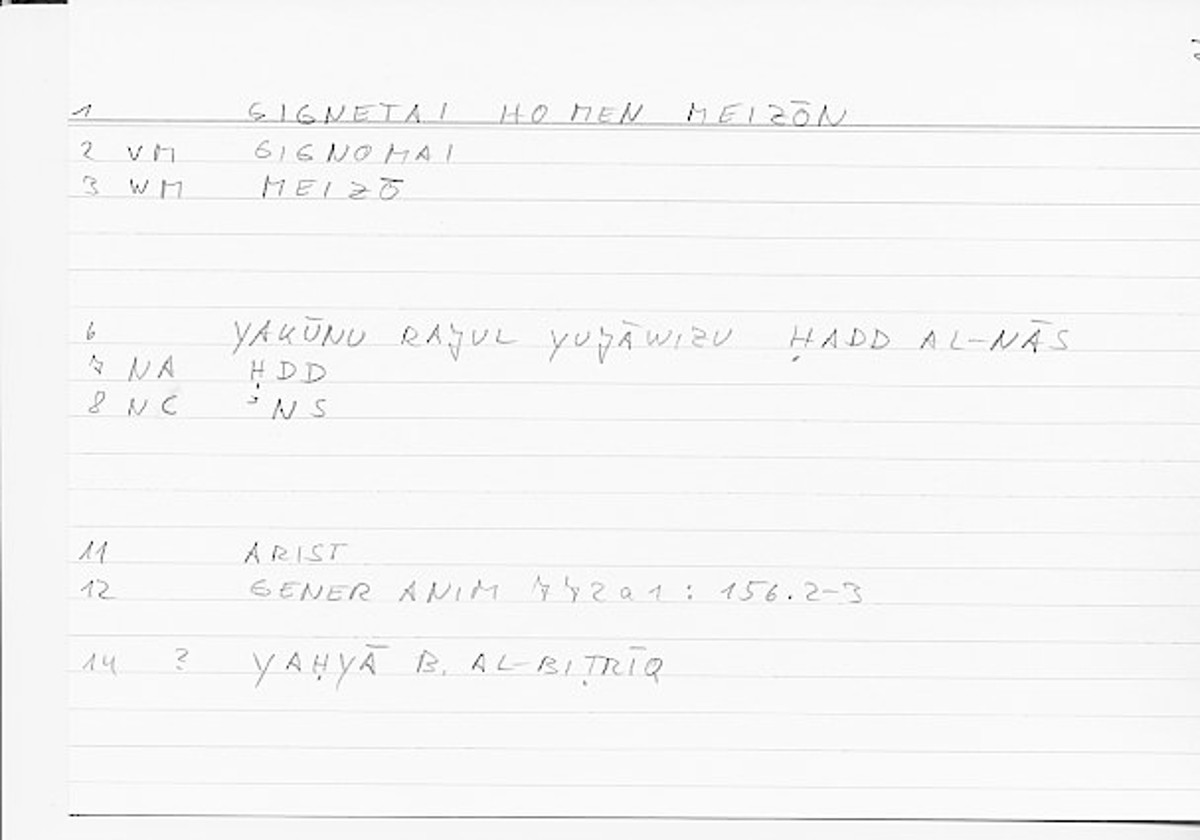 1 GIGNETAI HO MEN MEIZŌN
2 VM GIGNOMAI
3 WM MEIZŌ
6 YAKŪNU RAJUL YUJĀWIZU ḤADD AL-NĀS
7 NA ḤDD
8 NC ʾNS
11 ARIST
12 GENER ANIM 772a1 : 156.2-3
14 ? YAḤYĀ B. AL-BIṬRĪQ